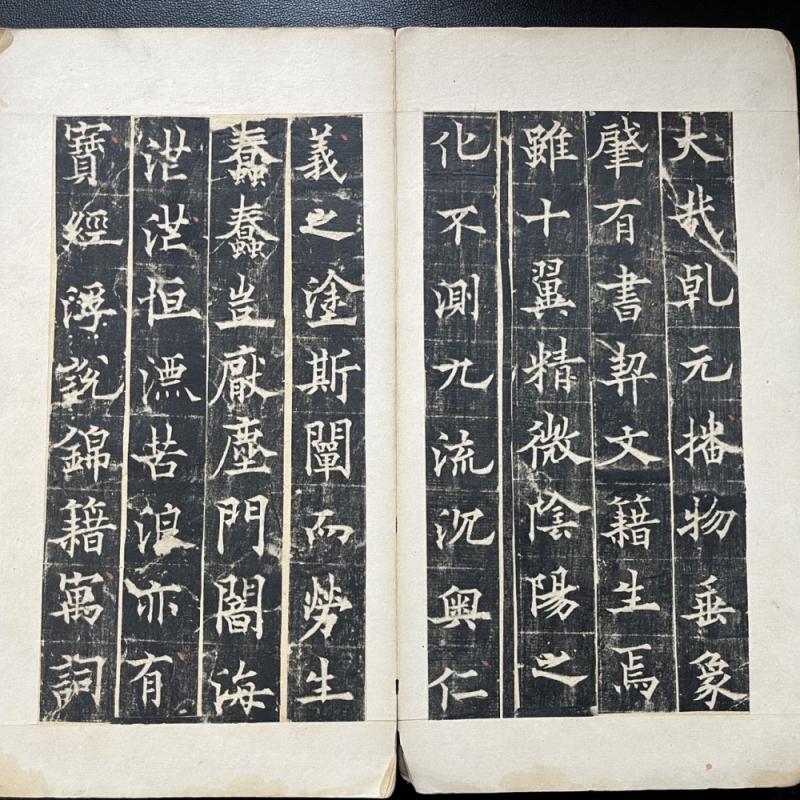 大哉乹元播物垂象
肈有書契文籍生焉
雖十翼精微陰陽之
化不測九流沉奧仁
義之塗斯闡而勞生
蠢蠢豈厭塵門闇海
茫茫恒漂苦浪亦有
寶經浮說錦籍寓詞